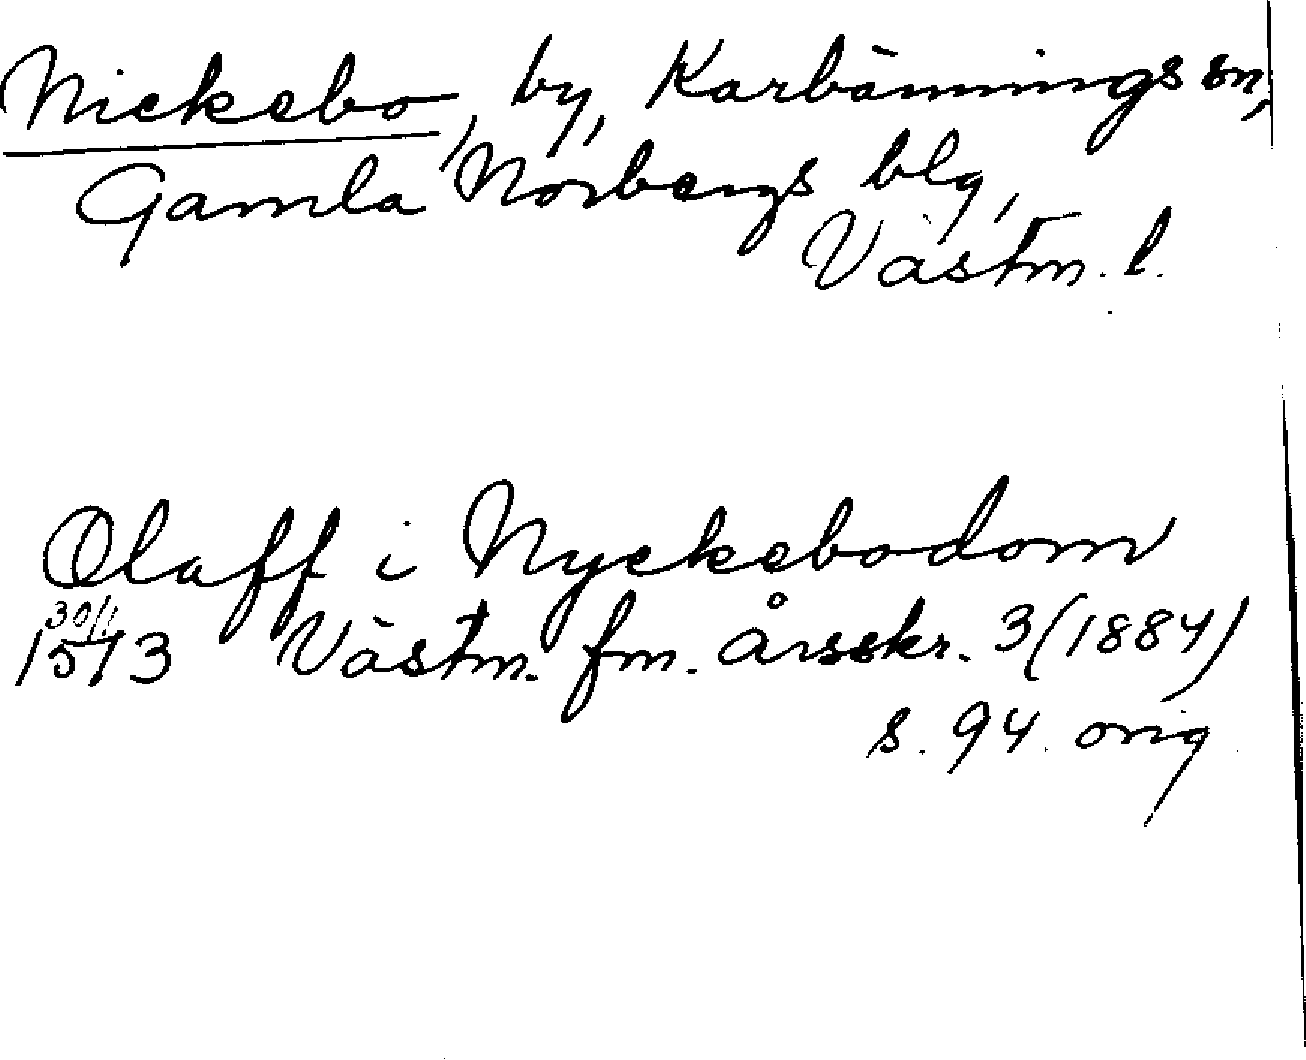 Nickebo, by, Karbännings sn,
Gamla Norbergs blg,
Västm. l.
Olaff i Nyckebodom
30/1
1513 Västm. fm. årsskr. 3 (1884)
s. 94. orig